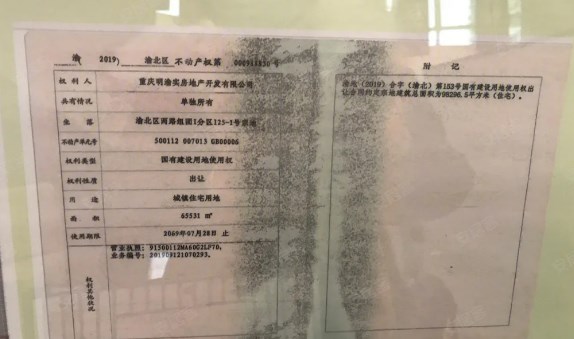 渝(2019) 渝北区 不动产权第 号
权利人 重庆明渝实房地产开发有限公司
共有情况 单独所有
坐落 渝北区两路组团I分区125-1号宗地
不动产单元号 500112 007013 GB00006
权利类型 国有建设用地使用权
权利性质 出让
用途 城镇住宅用地
面积 65531 ㎡
使用期限 2069年07月28日 止
权利其他状况
营业执照:
业务编号: 201909121070293.
附 记
渝地(2019)合字(渝北)第153号国有建设用地使用权出
让合同约定宗地建筑总面积为98296.5平方米(住宅)。